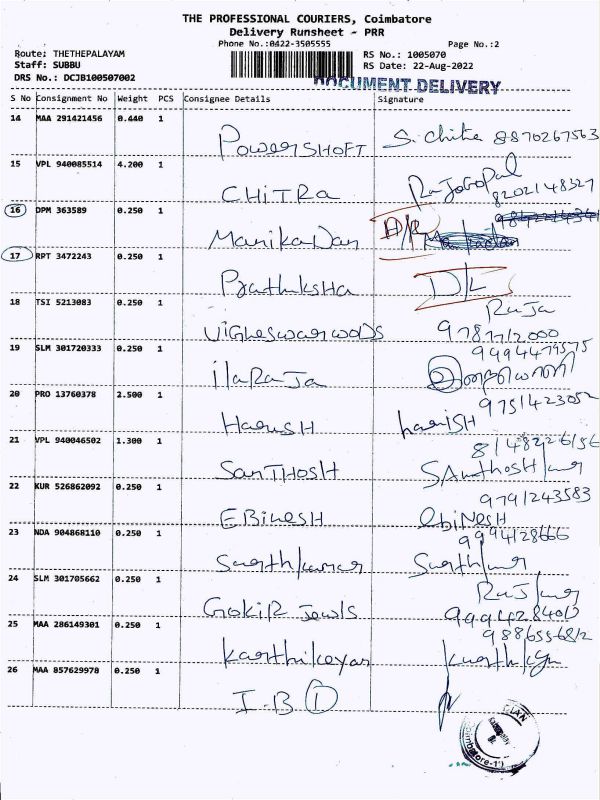 THE PROFESSIONAL COURIERS, Coimbatore
Delivery Runsheet - PRR
Phone No.:0422-3505555 Page No.:2
Route: THETHEPALAYAM RS No.: 1005070
Staff: SUBBU RS Date: 22-Aug-2022
DRS No.: DCJB100507002 DOCUMENT DELIVERY
S No Consignment No Weight PCS Consignee Details Signature
14 MAA 291421456 0.440 1
PowerSHOFT S. Chitra 8870267563
15 VPL 940085514 4.200 1
CHITRA RaJaGopal
8202148327
16 DPM 363589 0.250 1
ManikaDan
17 RPT 3472243 0.250 1
PrathiksHa D/L
18 TSI 5213083 0.250 1 RaJa
VIGHESWARWODS
19 SLM 301720333 0.250 1 9994479575
IlaRaJa
20 PRO 13760378 2.500 1 9751423052
HarisH harisH
21 VPL 940046502 1.300 1 8148226156
SanTHOSH
22 KUR 526862092 0.250 1 9791243583
EBinesH ebiNesH
23 NDA 904868110 0.250 1 9994128666
24 SLM 301705662 0.250 1
GOKIR Jewls
25 MAA 286149301 0.250 1
Karthikeyan
26 MAA 857629978 0.250 1
I.B ①